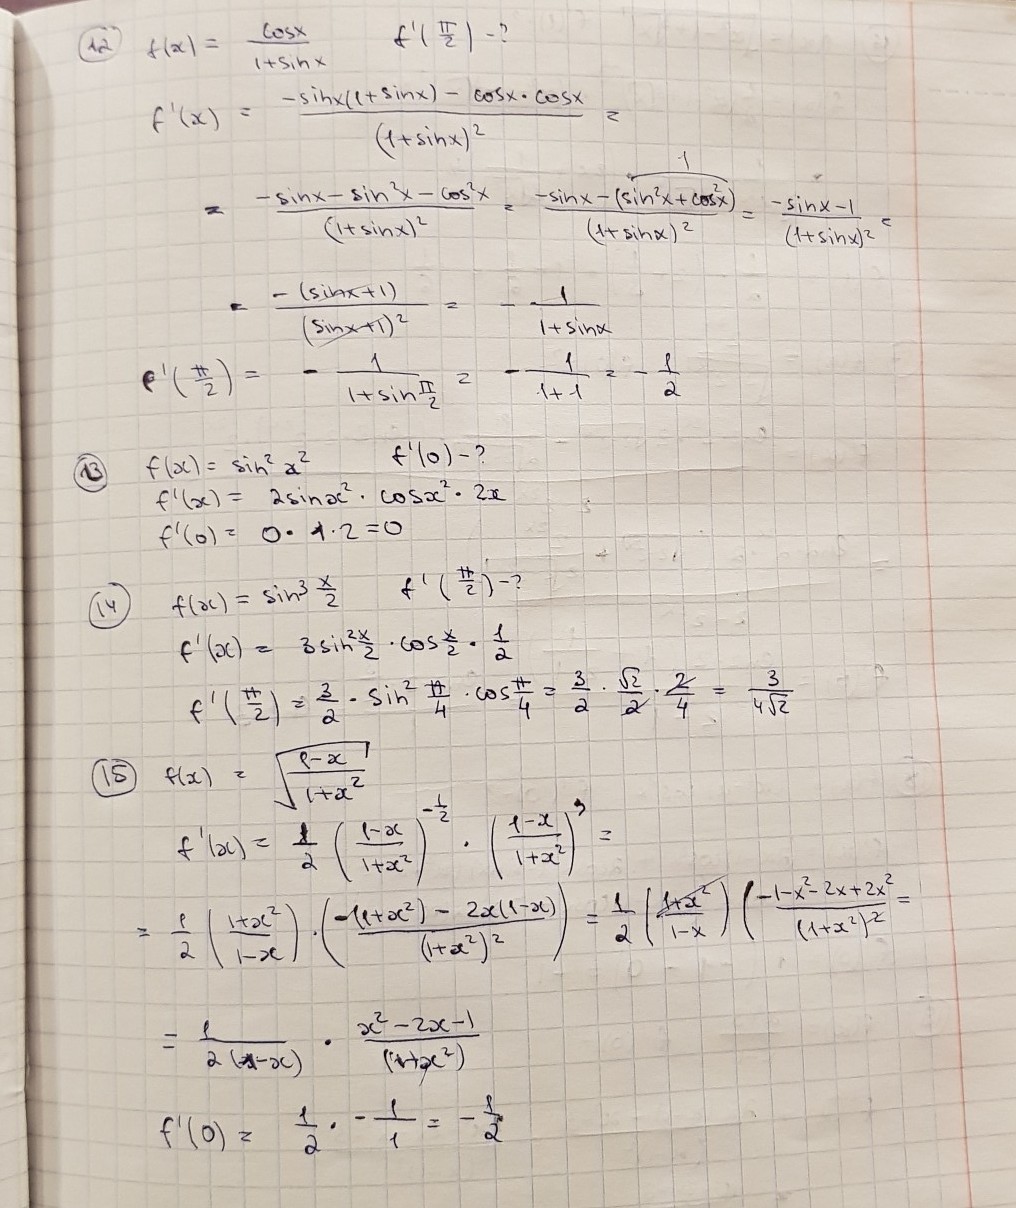 12 f(x) = cosx / 1+sinx f'(π/2) - ?
f'(x) = -sinx(1+sinx) - cosx·cosx / (1+sinx)² =
= -sinx - sin²x - cos²x / (1+sinx)² = -sinx - (sin²x+cos²x) / (1+sinx)² = -sinx-1 / (1+sinx)² =
1
= -(sinx+1) / (sinx+1)² = - 1 / 1+sinx
f'(π/2) = - 1 / 1+sin π/2 = - 1 / 1+1 = - 1/2
13 f(x) = sin² x² f'(0) - ?
f'(x) = 2sinx² · cosx² · 2x
f'(0) = 0 · 1 · 2 = 0
14 f(x) = sin³ x/2 f'(π/2) - ?
f'(x) = 3sin² x/2 · cos x/2 · 1/2
f'(π/2) = 3/2 · sin² π/4 · cos π/4 = 3/2 · √2/2 · 2/4 = 3 / 4√2
15 f(x) = √(1-x / 1+x²)
f'(x) = 1/2 (1-x / 1+x²)^(-1/2) · (1-x / 1+x²)' =
= 1/2 (1+x² / 1-x) · (-1(1+x²) - 2x(1-x) / (1+x²)²) = 1/2 (1+x² / 1-x) (-1-x²-2x+2x² / (1+x²)² =
= 1 / 2(1-x) · x²-2x-1 / (1+x²)
f'(0) = 1/2 · - 1/1 = - 1/2